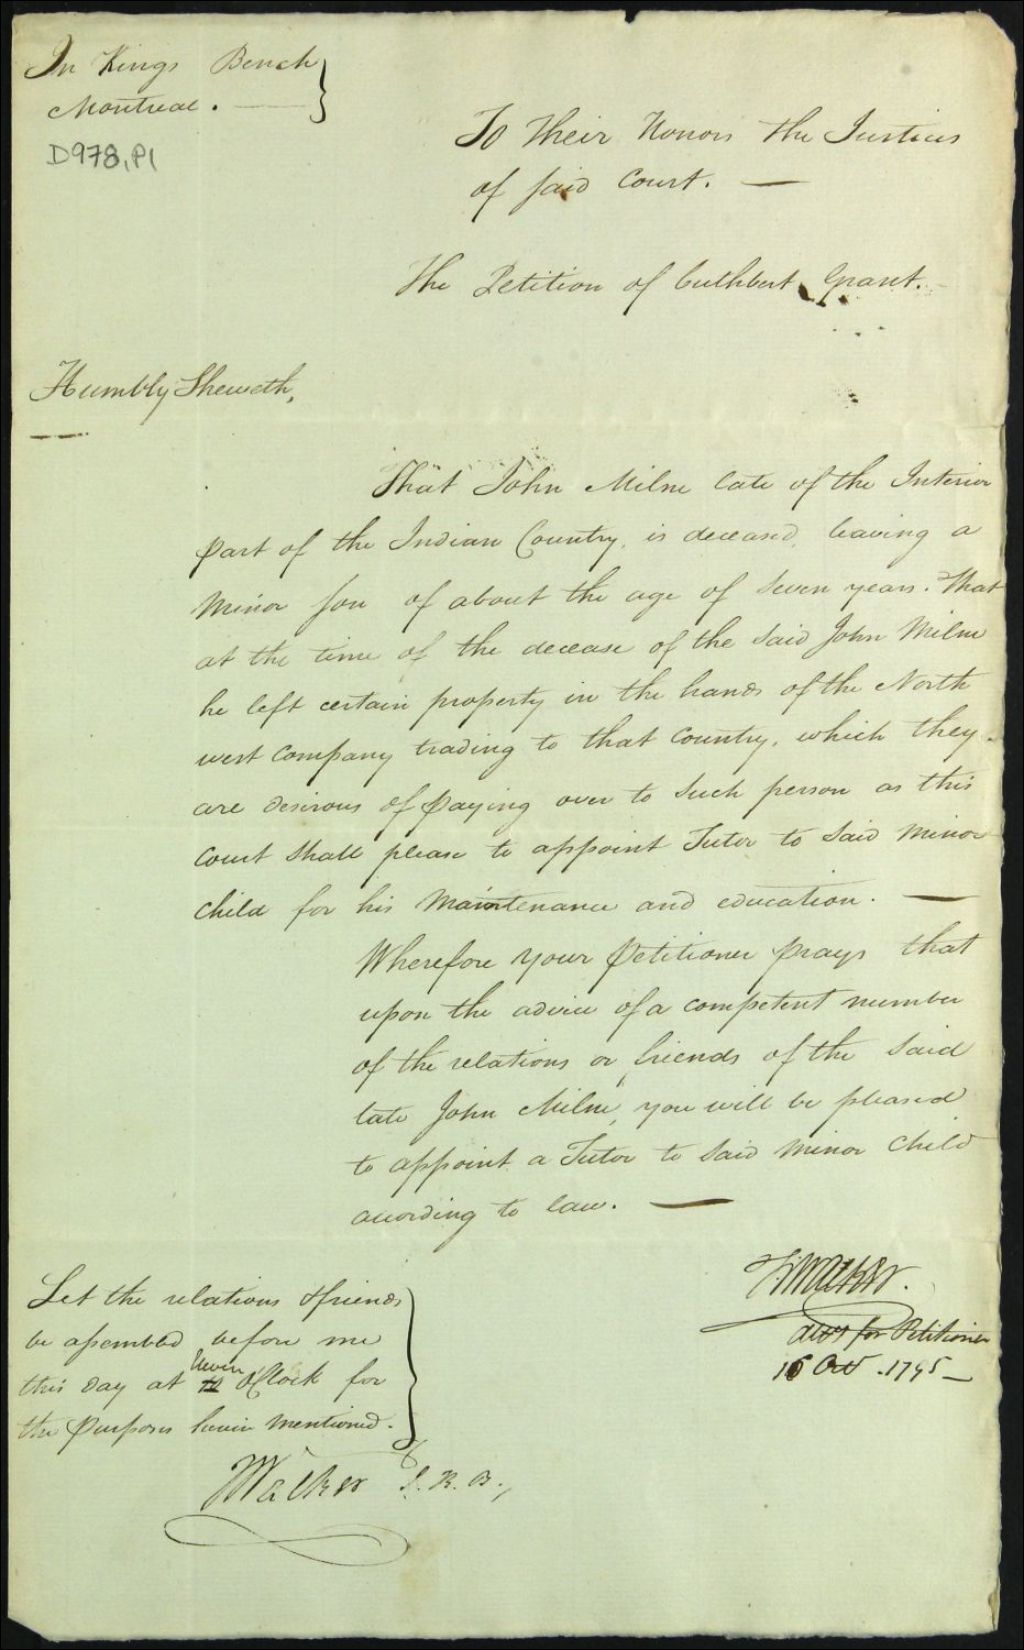 In Kings Bench
Montreal.
D978, P1
To Their Honors the Justices
of said Court. —
The Petition of Cuthbert Grant.
Humbly Sheweth,
That John Milne late of the Interior
part of the Indian Country, is deceased, leaving a
Minor son of about the age of Seven years. That
at the time of the decease of the Said John Milne
he left certain property in the hands of the North
west Company trading to that Country, which they
are desirous of paying over to Such person as this
Court Shall please to appoint Tutor to Said Minor
Child for his Maintenance and education. —
Wherefore your Petitioner prays that
upon the advice of a competent number
of the relations or friends of the Said
late John Milne, you will be pleased
to appoint a Tutor to Said Minor Child
according to law. —
Walker.
for Petitioner
15 Oct. 1795 —
Let the relations & friends
be assembled before me
this day at Eleven O'Clock for
the Purposes herein mentioned.
Walker J. K. B.,